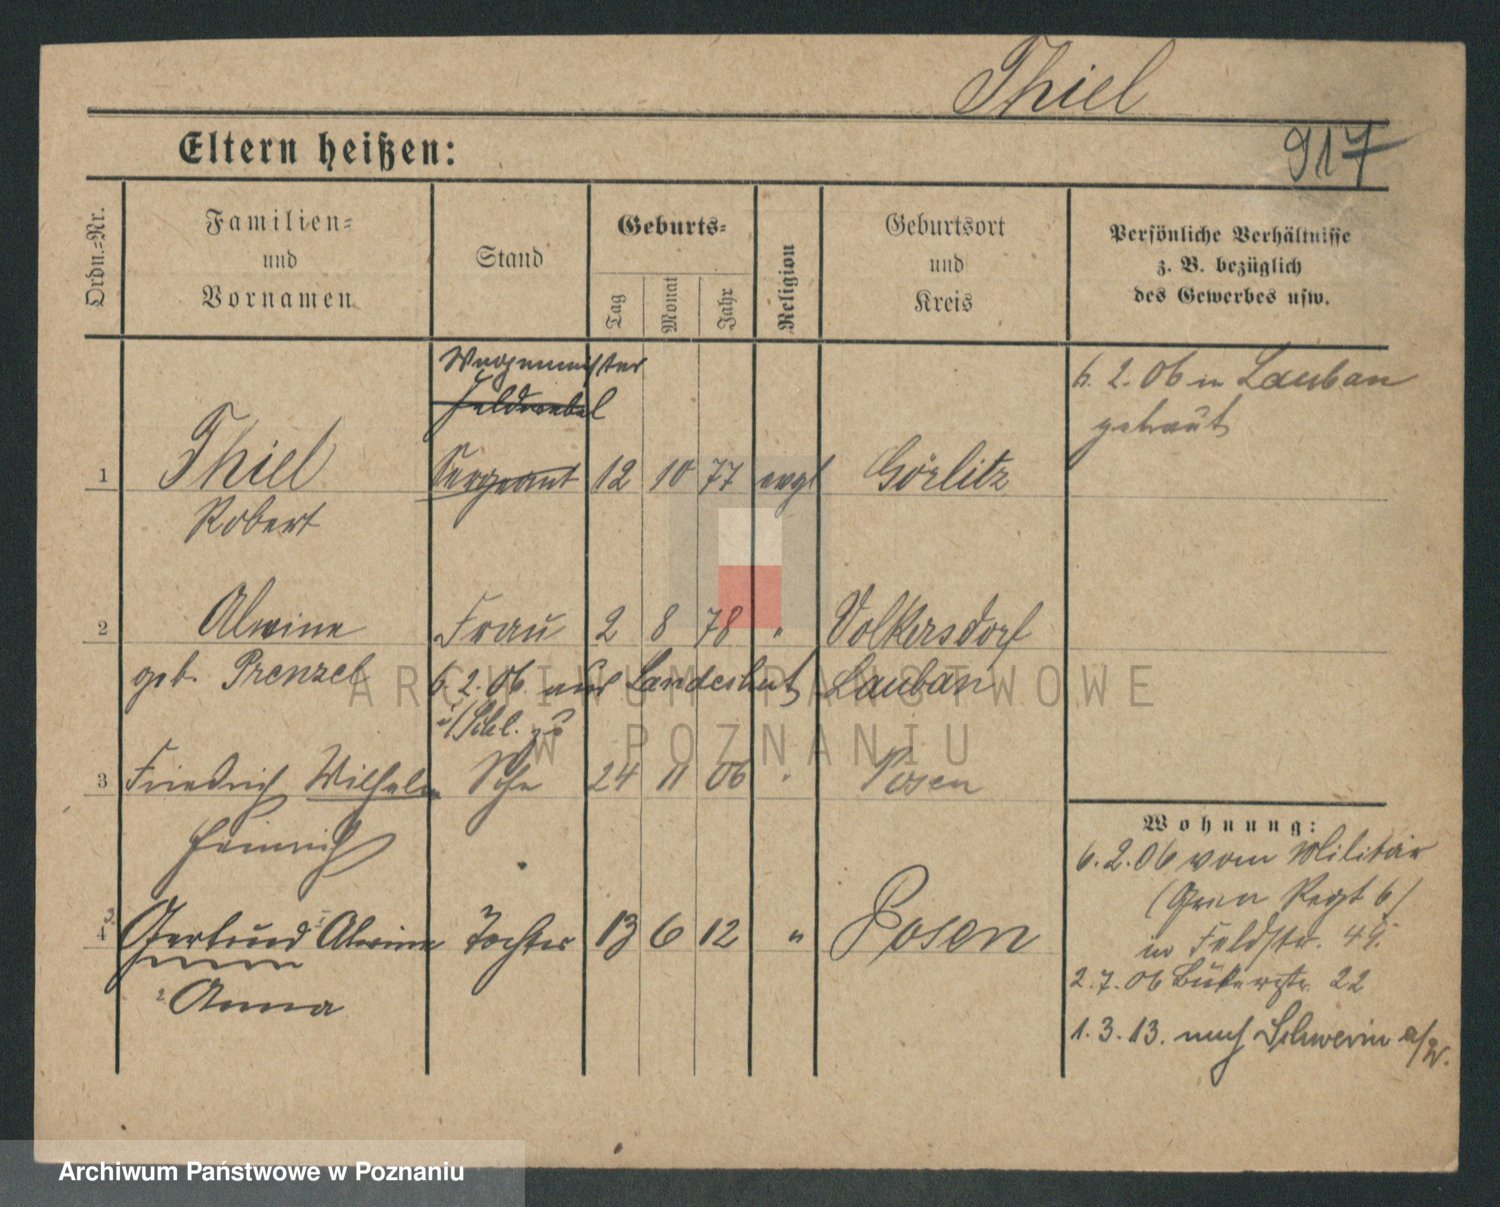 Thiel
917
Eltern heißen:
Ordn.=Nr.
Familien=
und
Vornamen
Stand
Geburts=
Tag
Monat
Jahr
Religion
Geburtsort
und
Kreis
Persönliche Verhältnisse
z. B. bezüglich
des Gewerbes usw.
Feldwebel
6. 2. 06 in Lauban
getraut
1 Thiel Sergeant 12 10 77 evgl Görlitz
Robert
2 Alwine Frau 2 8 78 " Volkersdorf
geb. Prenzel 6. 2. 06. aus Landeshut Lauban
i/Schl. zu
3 Friedrich Wilhelm Sohn 24 11 06 " Posen
Heinrich
Wohnung:
6. 2. 06 vom Militär
(Gren Regt 6)
in Feldstr.
2. 7. 06 22
1. 3. 13. nach Schwerin a/W.
4 Gertrud Alwine Tochter 13 6 12 " Posen
Anna
ARCHIWUM PAŃSTWOWE
W POZNANIU
Archiwum Państwowe w Poznaniu